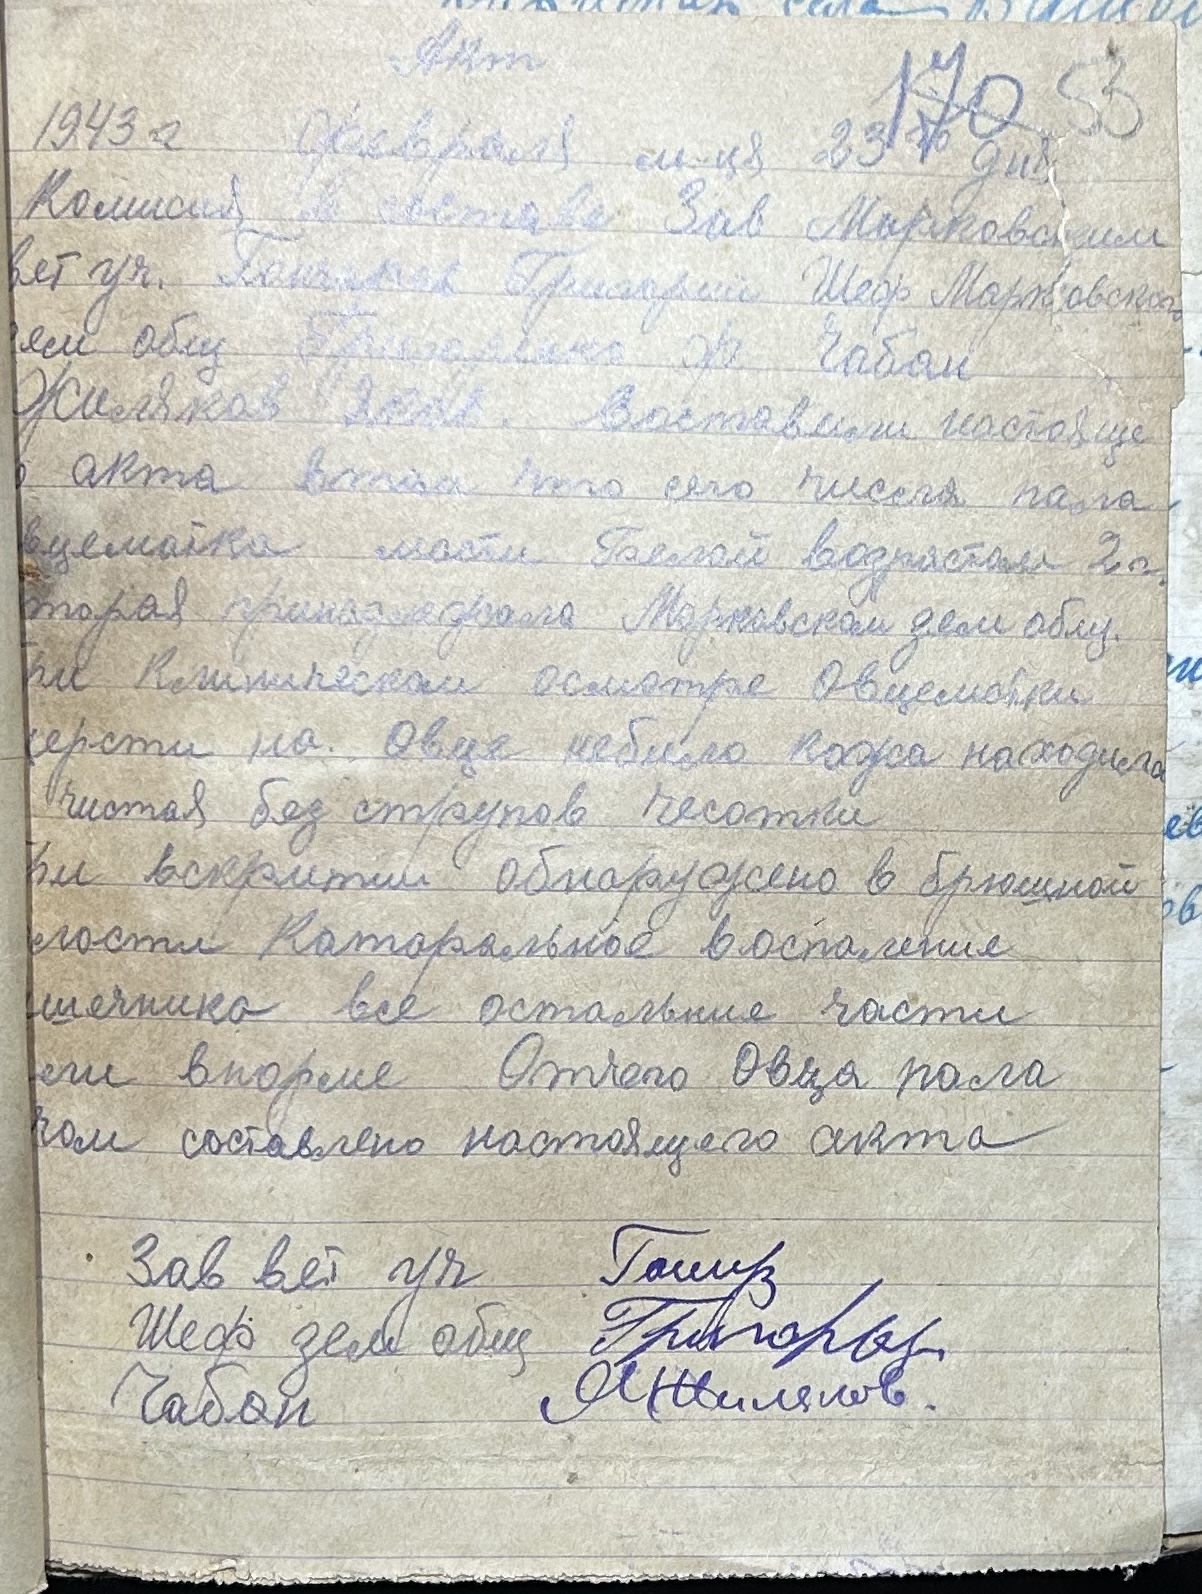 Акт
170 53
1943 г февраля м-ця 23го дня
Комисия в составе Зав Марковским
вет уч. Григорий Шеф Марковского
зем общ Григоренко ф Чабан
Жиляков Яков. воставили настояще
акта втом что сего числа пала
вцематка масти Белой возрастом 2 г.
торая принадледжала Марковском зем общ.
ри Клиническом осмотре Овцематки
ерсти на Овце небило кожа находила
чистая без струпов чесотки
ри вскритии обнаружено в брюшной
лости Катаральное воспаление
шечника все остальние части
ели внорме Отчего Овца пала
чом составлено настоящего акта
Зав вет уч
Шеф зем общ Григорь
Чабан ЯЖиляков.